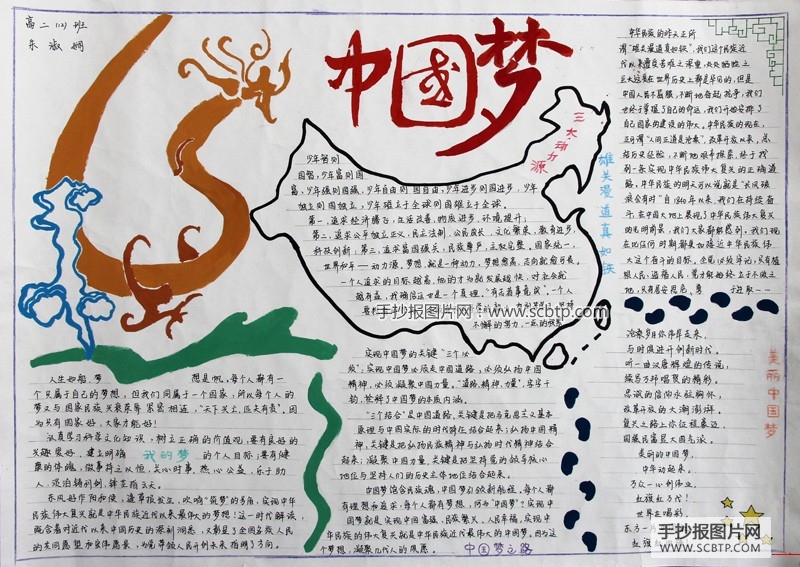 高二(12)班
朱淑娴
中国梦
三大动力源
少年智则
国智,少年富则国
富,少年强则国强,少年自由则国自由,少年进步则国进步,少年
独立则国独立,少年雄于全球则国雄立于全球。
第一,追求经济腾飞,生活改善,物质进步,环境提升;
第二,追求公平独立正义,民主法制,公民成长,文化繁荣,教育进步,
科技创新;第三,追求富国强兵,民族尊严,主权完整,国家统一,
世界和平——动力源,梦想就是一种动力,梦想愈高,志向就愈可贵。
一个人追求的目标越高,他的才力就发展越快,对社会就
越有益,我确信这也是一个真理。"有志者事竟成",一个人
不懈的努力,一定的
手抄报图片网 www.scbtp.com
雄关漫道真如铁
中华民族的昨天正所
谓"雄关漫道真如铁",我们这个民族近
中国人民不屈服,不断地奋起抗争,我们
终于掌握了自己的命运,我们开始安排了
自己国家的建设的伟大。中华民族的现在,
正所谓"人间正道是沧桑",改革开放以来,总
结历史经验,不断地艰辛探索,终于找
到一条实现中华民族伟大复兴的正确道
路,中华民族的明天可以说就是"长风破
浪会有时"自1840年以来,我们在持续奋
斗,在中国大地上展现了中华民族伟大复兴
的光明前景,我们大家都能感到,我们现
在比任何时期都是如接近中华民族伟
大这个奋斗的目标。
人生如船,梦想是帆。每个人都有一
个只属于自己的梦想,但我们同属于一个国家,所以每个人的
梦又与国家民族兴衰荣辱紧密相连,"天下兴亡,匹夫有责",因
为只有国家好,大家才能好!
认真学习科学文化知识,树立正确的价值观;要有良好的
兴趣爱好,建立明确
我的梦
的个人目标;要有健
康的体魄,做事持之以恒,关心时事,热心公益,乐于助
东风好作阳和使,逢草逢花报发生。吹响"筑梦"的号角,实现中华
民族伟大复兴就是中华民族近代以来最伟大的梦想!这一时代解读,
既含着对近代以来中国历史的深刻洞悉,又彰显了全国各族人民
的共同愿望和宏伟愿景,为党带领人民开创未来指明了方向。
实现中国梦的关键"三个必
须",实现中国梦必须走中国道路,必须弘扬中国
精神,必须凝聚中国力量。"道路,精神,力量",字字千
钧,诠释了中国梦的本质内涵。
"三个结合"是中国道路,关键是把马克思主义基本
原理与中国实际的时代特征结合起来;弘扬中国精
神,关键是把弘扬民族精神与弘扬时代精神结合
起来;凝聚中国力量,关键是把坚持党的领导核心
地位与坚持人们的历史主体地位结合起来。
中国梦饱含民族魂,中国梦引领新航程,每个人都
有理想和追求,每个人都有梦想,何为"中国梦"?实现中
国梦就是实现中国富强,民族繁兴,人民幸福,实现中
华民族的伟大复兴就是中华民族近代最伟大的中国梦。因为这
个梦想,凝聚几代人的夙愿。
中国梦之路
沧桑岁月你伟岸走来,
与时俱进开创新时代。
听一曲汉唐辉煌的传说,
续写万种唱赞的精彩,
忠诚的信仰永放胸怀,
改革开放的大潮澎湃。
复兴之路上你征程豪迈,
国强民富显大国气派。
美丽的中国梦,
中华动起来。
万众一心创伟业,
红旗红万代!
世界正喝彩,
美丽中国梦
手抄报图片网
WWW.SCBTP.COM